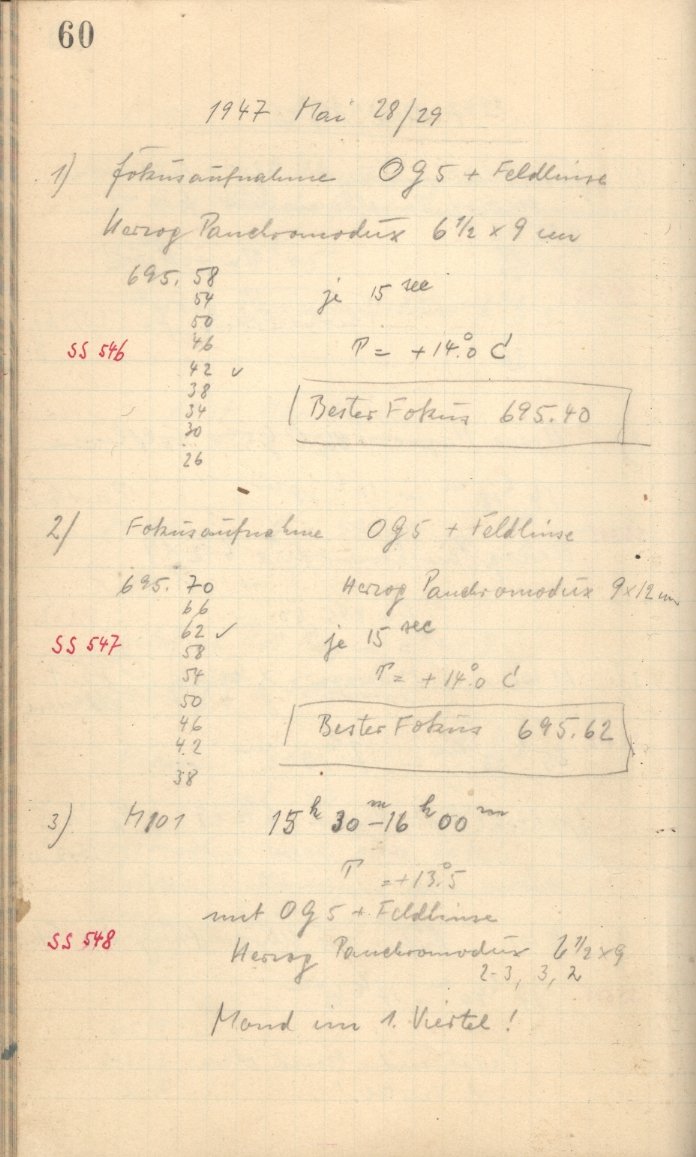 60
1947 Mai 28/29
1) Fokusaufnahme OG5 + Feldlinse
Herzog Panchromodux 6 1/2 x 9 cm
695.58
54
je 15 sec
50
SS 546
46
T = +14°.0 C
42 ✓
38
34
Bester Fokus 695.40
30
26
2) Fokusaufnahme OG5 + Feldlinse
695.70
Herzog Panchromodux 9x12 cm
66
62 ✓
je 15 sec
SS 547
58
54
T = +14°.0 C
50
46
Bester Fokus 695.62
42
38
3) M101 15h 30m–16h 00m
T = +13°.5
mit OG5 + Feldlinse
SS 548
Herzog Panchromodux 6 1/2 x 9
2-3, 3, 2
Mond im 1. Viertel!